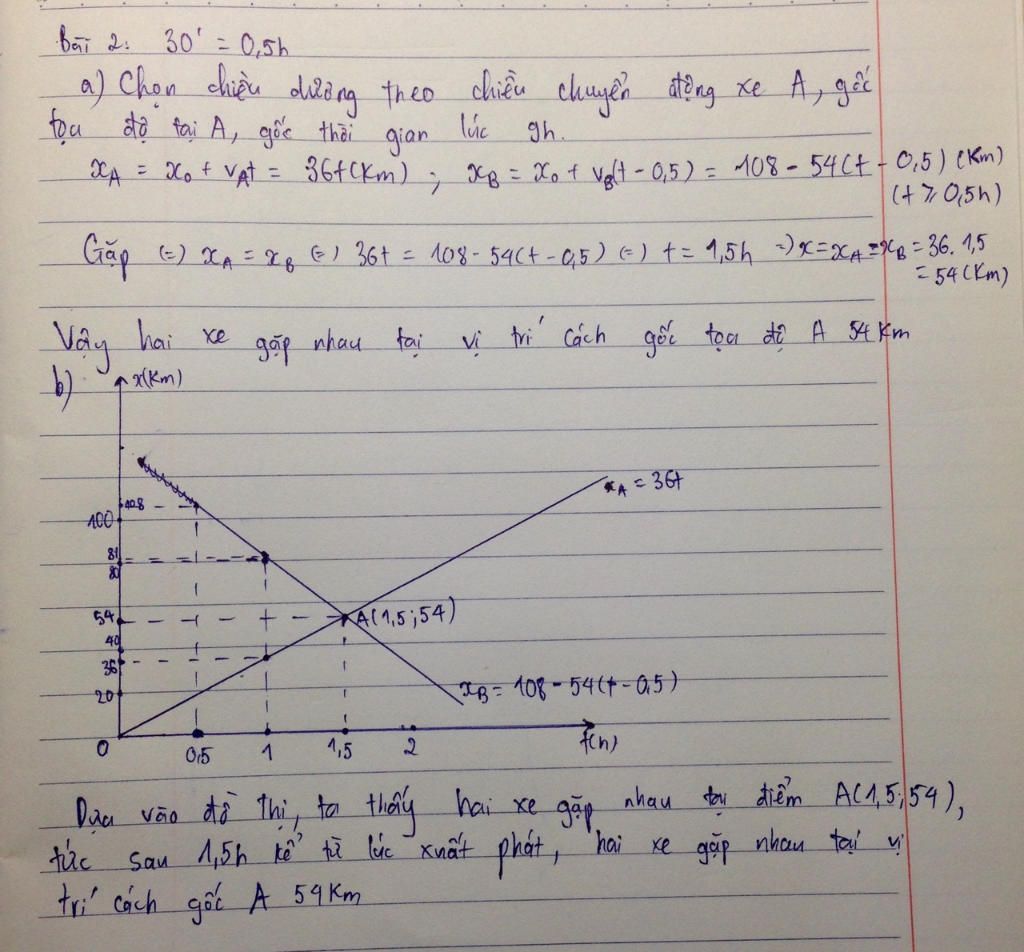 Bài 2: 30' = 0,5h
a) Chọn chiều dương theo chiều chuyển động xe A, gốc
tọa độ tại A, gốc thời gian lúc 9h.
xA = x0 + vAt = 36t(Km) ; xB = x0 + vB(t - 0,5) = 108 - 54(t - 0,5) (Km)
(t ⩾ 0,5h)
Gặp (=) xA = xB (=) 36t = 108 - 54(t - 0,5) (=) t = 1,5h =) x = xA = xB = 36. 1,5
= 54(Km)
Vậy hai xe gặp nhau tại vị trí cách gốc tọa độ A 54 Km
b)
x(Km)
108
100
81
80
54
40
36
20
0
0,5
1
1,5
2
t(h)
xA = 36t
A(1,5;54)
xB = 108 - 54(t - 0,5)
Dựa vào đồ thị, ta thấy hai xe gặp nhau tại điểm A(1,5;54),
tức sau 1,5h kể từ lúc xuất phát, hai xe gặp nhau tại vị
trí cách gốc A 54Km